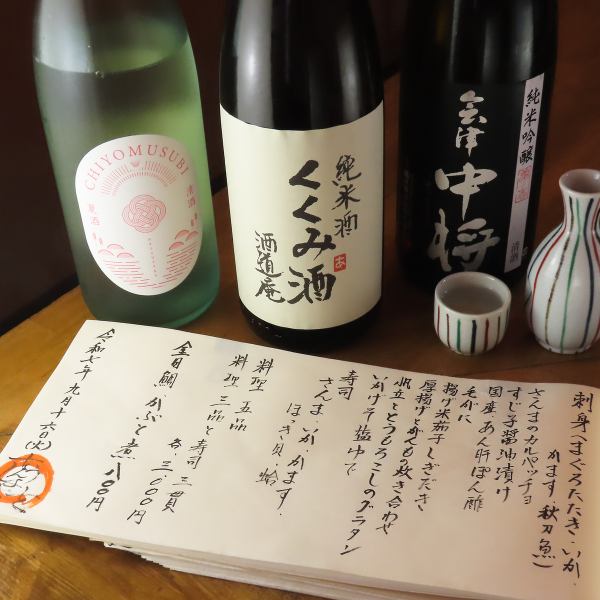 CHIYOMUSUBI
清酒
夏酒
純米酒
くくみ酒
酒道庵
あ
純米吟醸
会津
中将
清酒
刺身(まぐろたたき・いか・
かます・秋刀魚)
さんまのカルパッチョ
すじ子醤油漬け
国産あん肝ぽん酢
毛がに
揚げ米茄子しぎだき
厚揚げとがんもの炊き合わせ
帆立ととうもろこしのグラタン
いかげそ塩ゆで
寿司
さんま・いか・かます・
ほっき貝・蛤
料理 五品
料理 三品と寿司 三貫
各、三、〇〇〇円
金目鯛かぶと煮 八〇〇円
令和七年九月十六日(火)